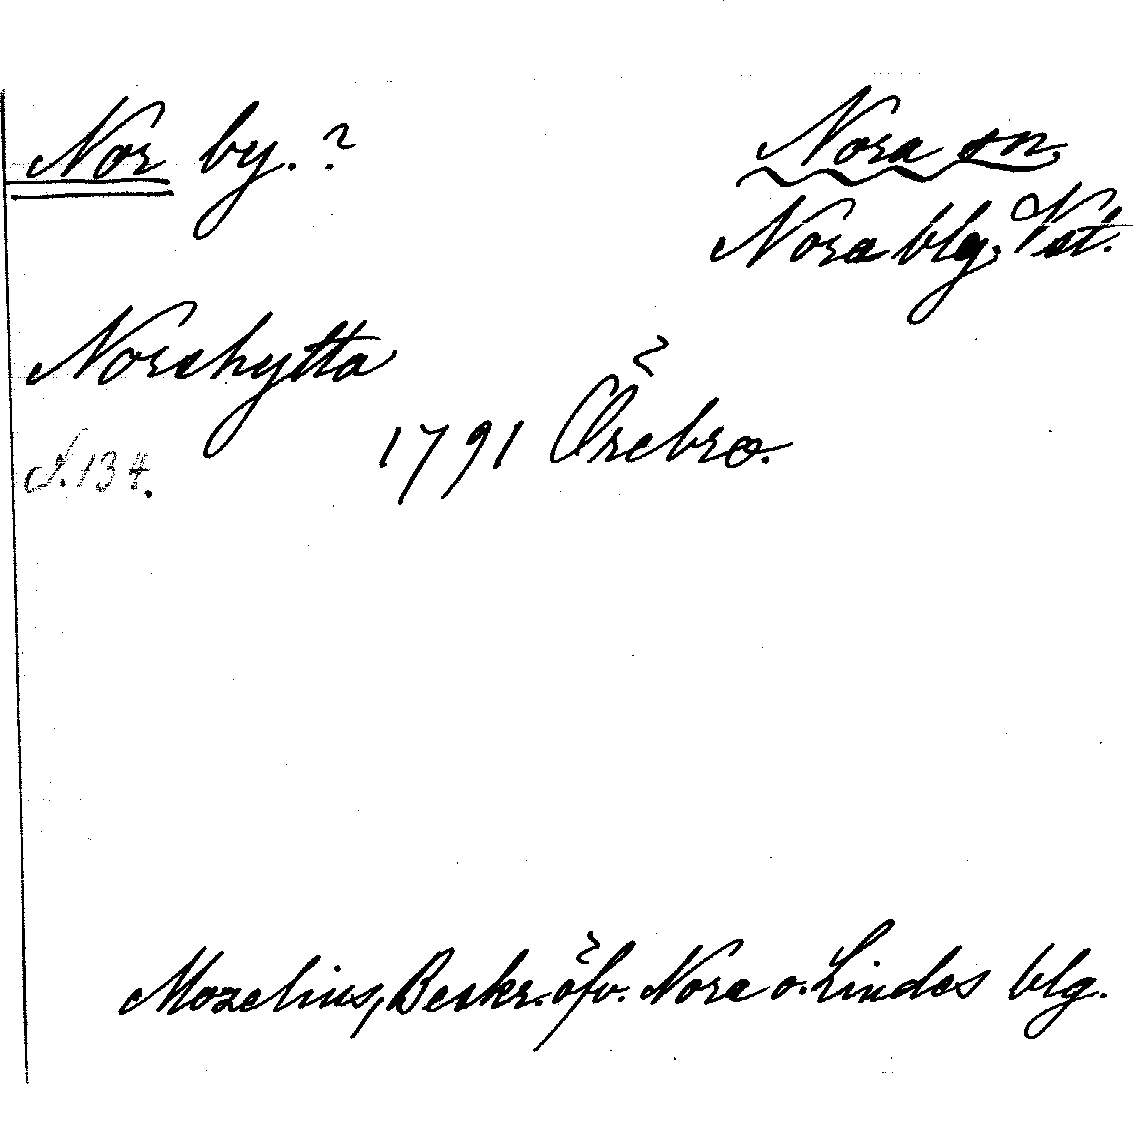 Nor by. ?
Nora sn.
Nora blg. Vstm.
Norahytta
1791 Örebro.
s. 134.
Mozelius, Beskr. öfv. Nora o. Lindes blg.